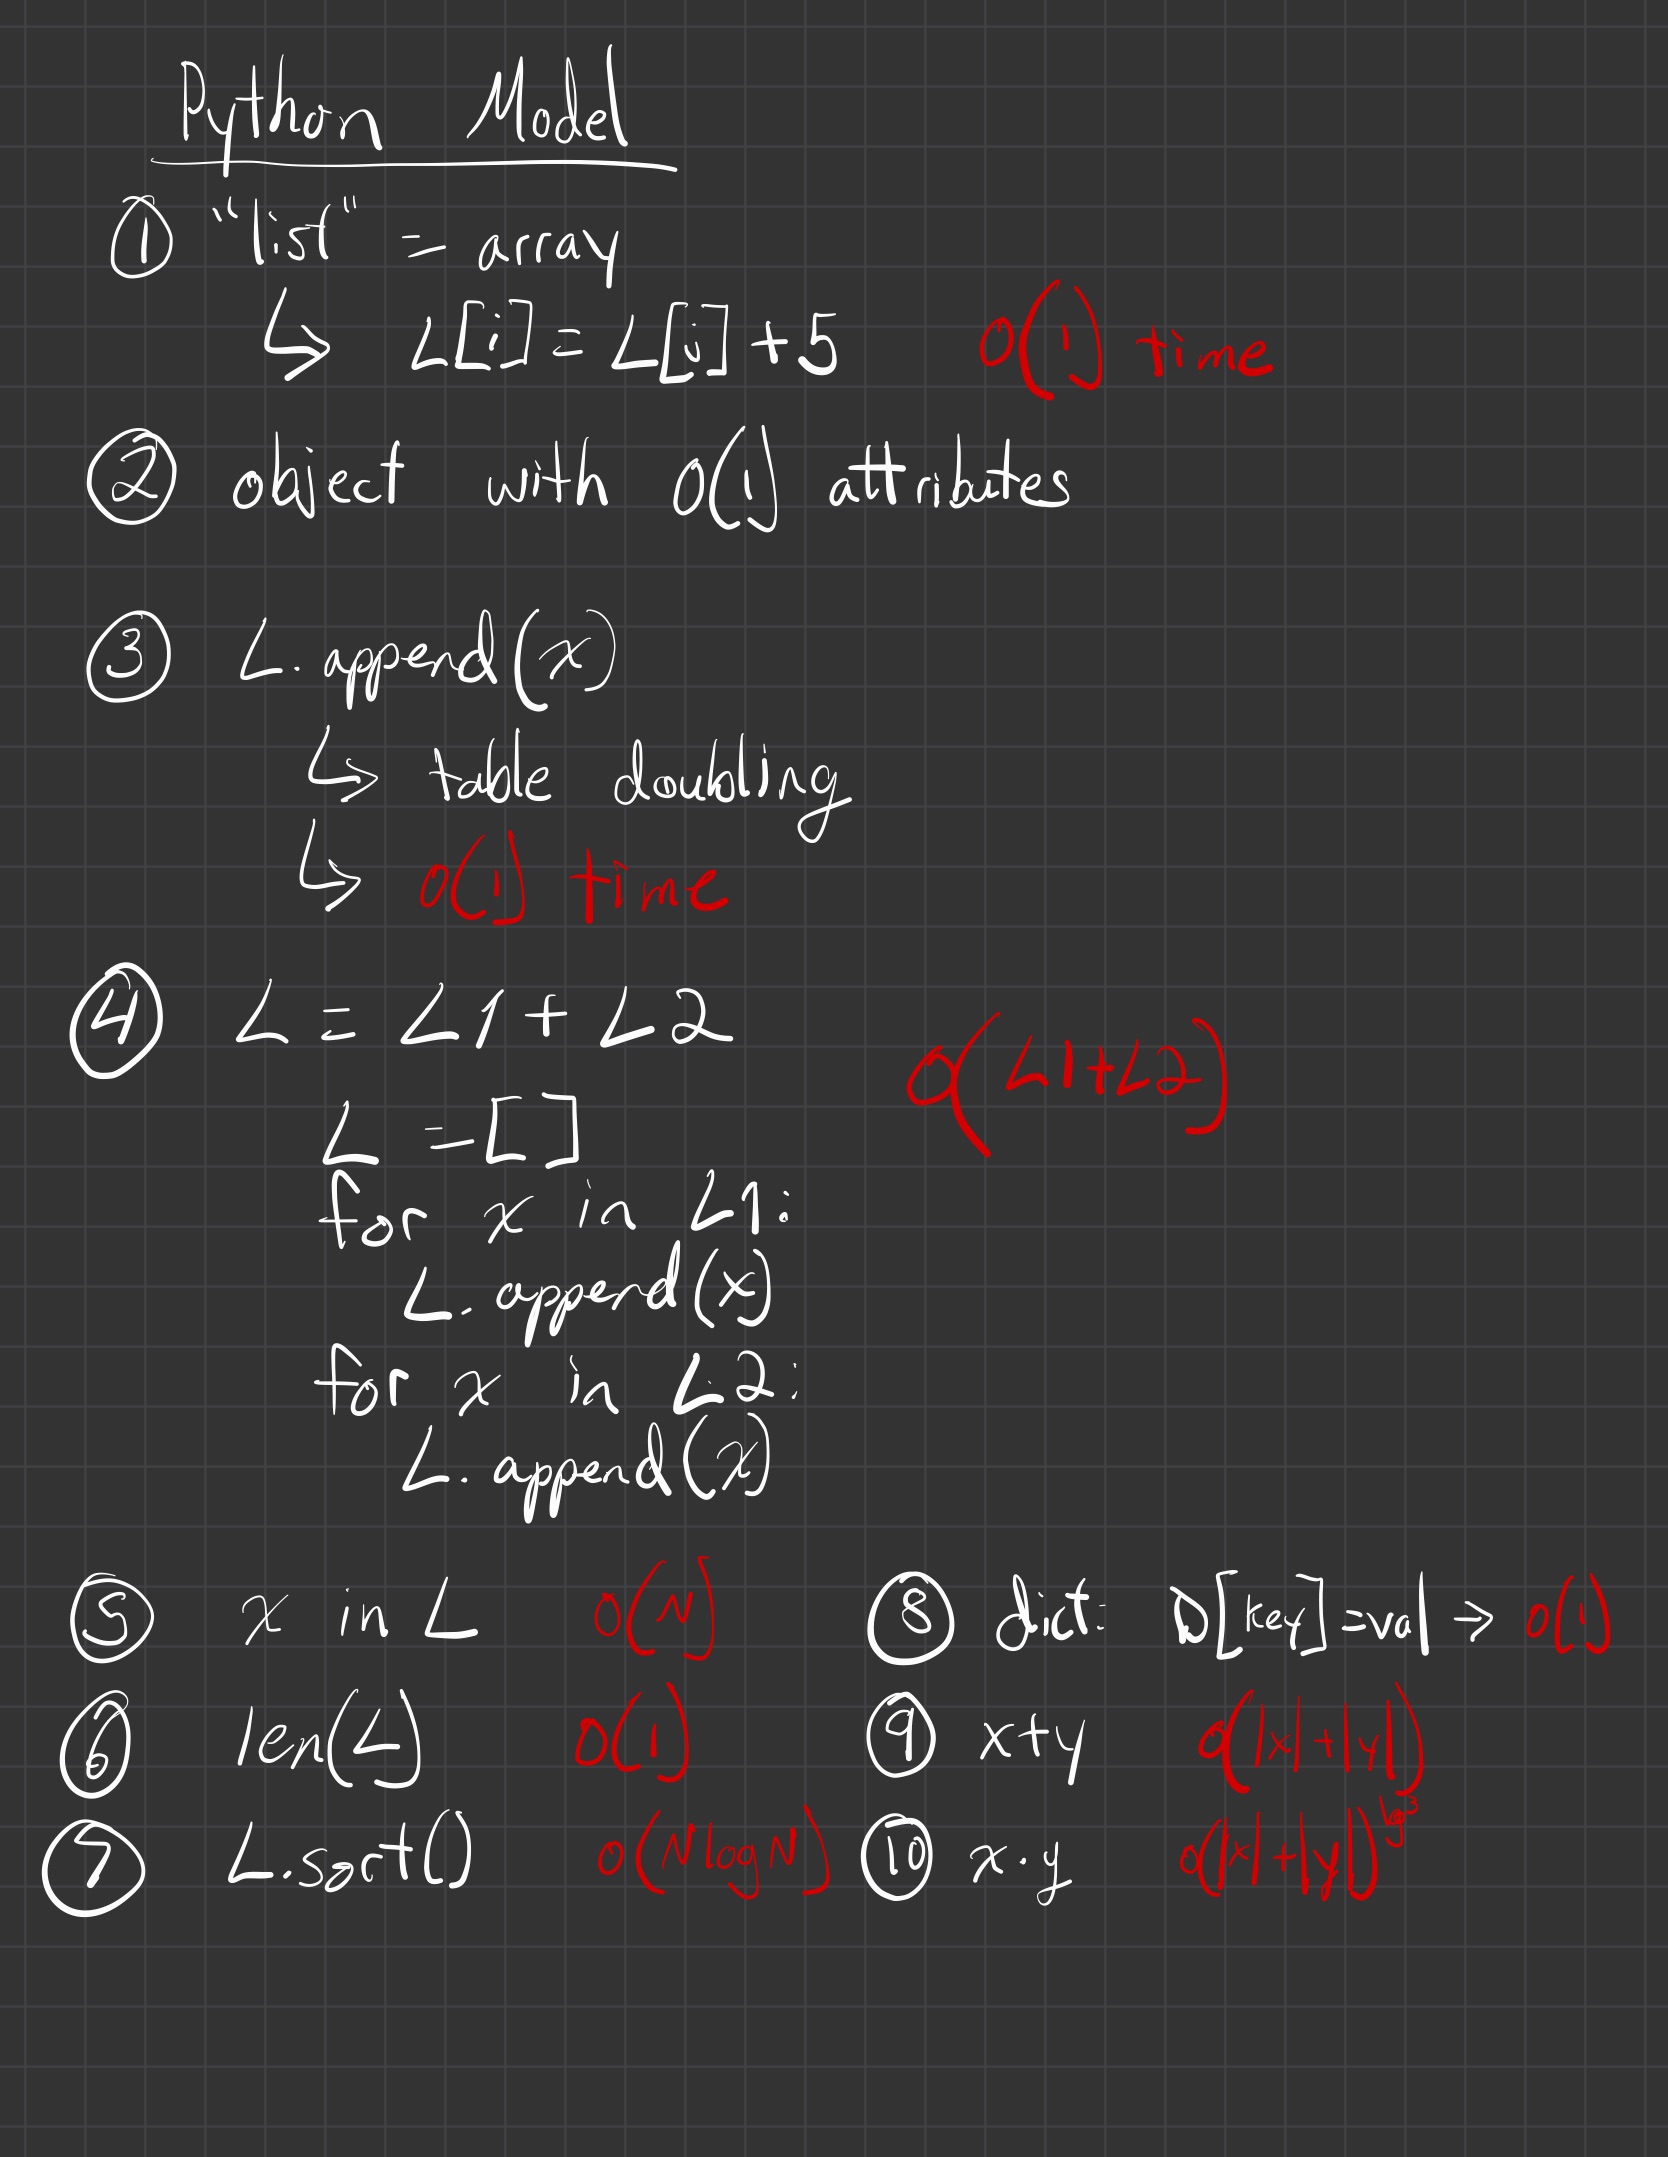 Python Model
① "list" = array
↳ L[i] = L[j] + 5 O(1) time
② object with O(1) attributes
③ L.append(x)
↳ table doubling
↳ O(1) time
④ L = L1 + L2
O(L1+L2)
L = []
for x in L1:
L.append(x)
for x in L2:
L.append(x)
⑤ x in L O(N)
⑥ len(L) O(1)
⑦ L.sort() O(N log N)
⑧ dict: D[key] = val → O(1)
⑨ x+y O(|x|+|y|)
⑩ x·y O(|x|+|y|)^lg3